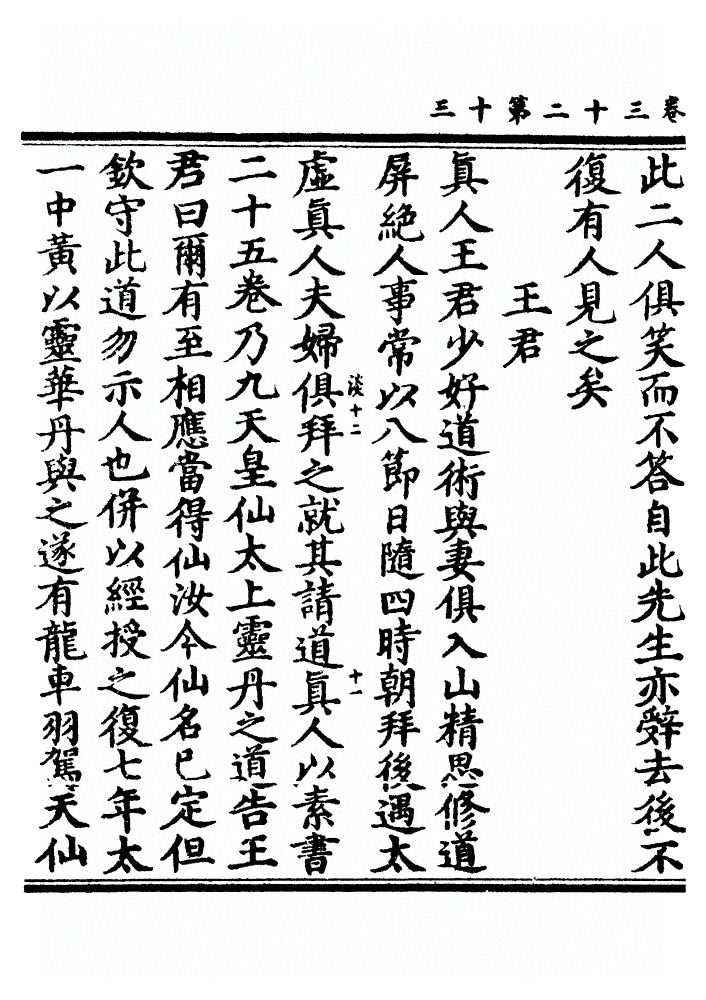 卷三十二第十三
此二人俱笑而不答自此先生亦辤去後不
復有人見之矣
王君
眞人王君少好道術與妻俱入山精思修道
屏絶人事常以八節日隨四時朝拜後遇太
淡十二
十一
虛眞人夫婦俱拜之就其請道眞人以素書
二十五卷乃九天皇仙太上靈丹之道告王
君曰爾有至相應當得仙汝今仙名已定但
欽守此道勿示人也併以經授之復七年太
一中黃以靈華丹與之遂有龍車羽駕天仙